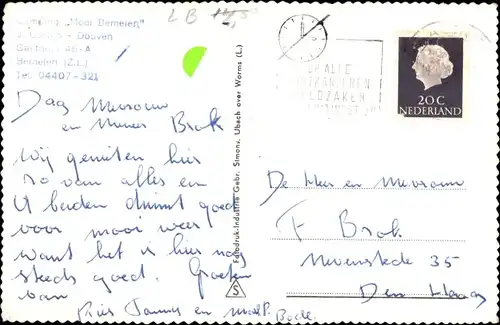 Camping „Moor Bemelen"
Gasthuis 45-A
Bemelen (Z.L.)
Tel. 04407-321
LB
Dag Mevrouw
en Meneer Brok
Wij genieten hier
zo van alles en
U beiden duimt goed
voor mooi weer
want het is hier nog
steeds goed. Groeten
van
Fotodruk-Industrie Gebr. Simons, Ubach over Worms (L.)
S
OP ALLE
20 C
NEDERLAND
De Heer en Mevrouw
F Brok
35
Den Haag